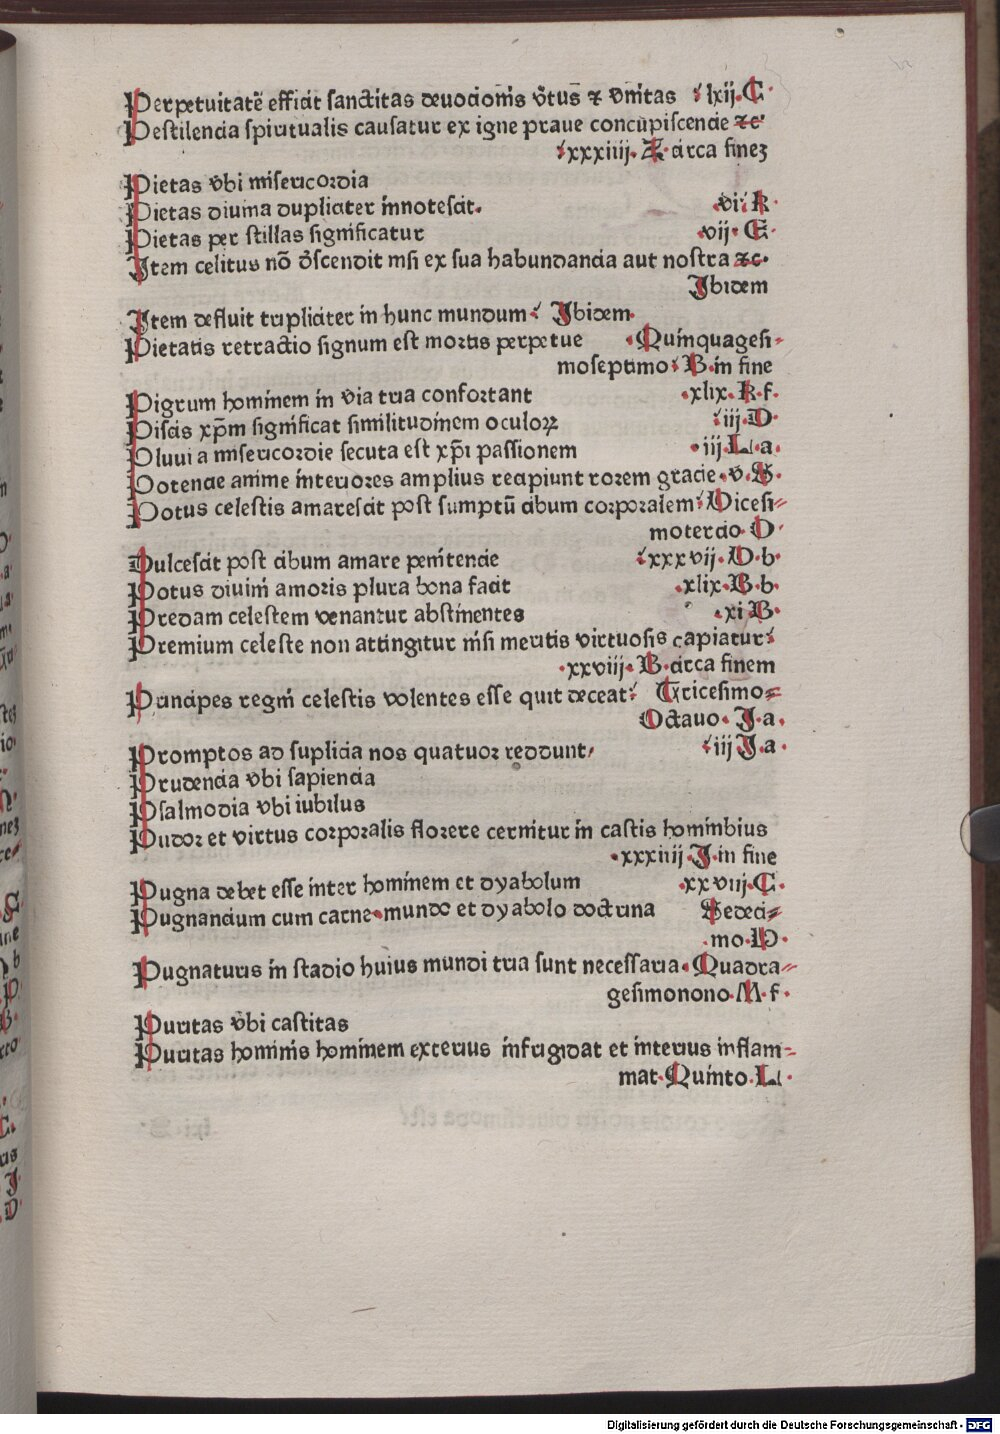 Perpetuitatē efficit sanctitas deuocionis v̄tus̄ ⁊ vnitas lxij. C
Pestilencia spiritualis causatur ex igne praue concupiscencie ⁊c.
xxxiiij. A. circa finez
Pietas vbi misericordia
Pietas diuina dupliciter innotescit. vi. K
Pietas per stillas significatur vij. E
Item celitus nō descendit nisi ex sua habundancia aut nostra ⁊c.
Ibidem
Item defluit tripliciter in hunc mundum Ibidem.
Pietatis retractio signum est mortis perpetue Quinquagesi-
moseptimo B. in fine
Pigrum hominem in via tria confortant xlix. K. f.
Piscis xp̄m significat similitudinem oculoꝝ iij D
Pluuia misericordie secuta est xp̄i passionem iij. L. a.
Potencie anime interiores amplius recipiunt rorem gracie. v. B.
Potus celestis amarescit post sumptū cibum corporalem Vicesi-
motercio. O
Dulcescit post cibum amare penitencie xxxvij. O. b
Potus diuini amoris plura bona facit xlix. B. b.
Predam celestem venantur abstinentes xi B.
Premium celeste non attingitur nisi meritis virtuosis capiatur
xxviij. B. circa finem
Principes regni celestis volentes esse quit deceat Tricesimo-
Octauo. I. a.
Promptos ad suplicia nos quatuor reddunt iij I. a.
Prudencia vbi sapiencia
Psalmodia vbi iubilus
Pudor et virtus corporalis florere cernitur in castis hominbius
xxxiiij I. in fine
Pugna debet esse inter hominem et dyabolum xxviij. C.
Pugnancium cum carne mundo et dyabolo doctrina Sedeci-
mo. D.
Pugnaturis in stadio huius mundi tria sunt necessaria. Quadra-
gesimonono. M. f.
Puritas vbi castitas
Puritas hominis hominem exterius infrigidat et interius inflam-
mat. Quinto. L.
Digitalisierung gefördert durch die Deutsche Forschungsgemeinschaft - DFG